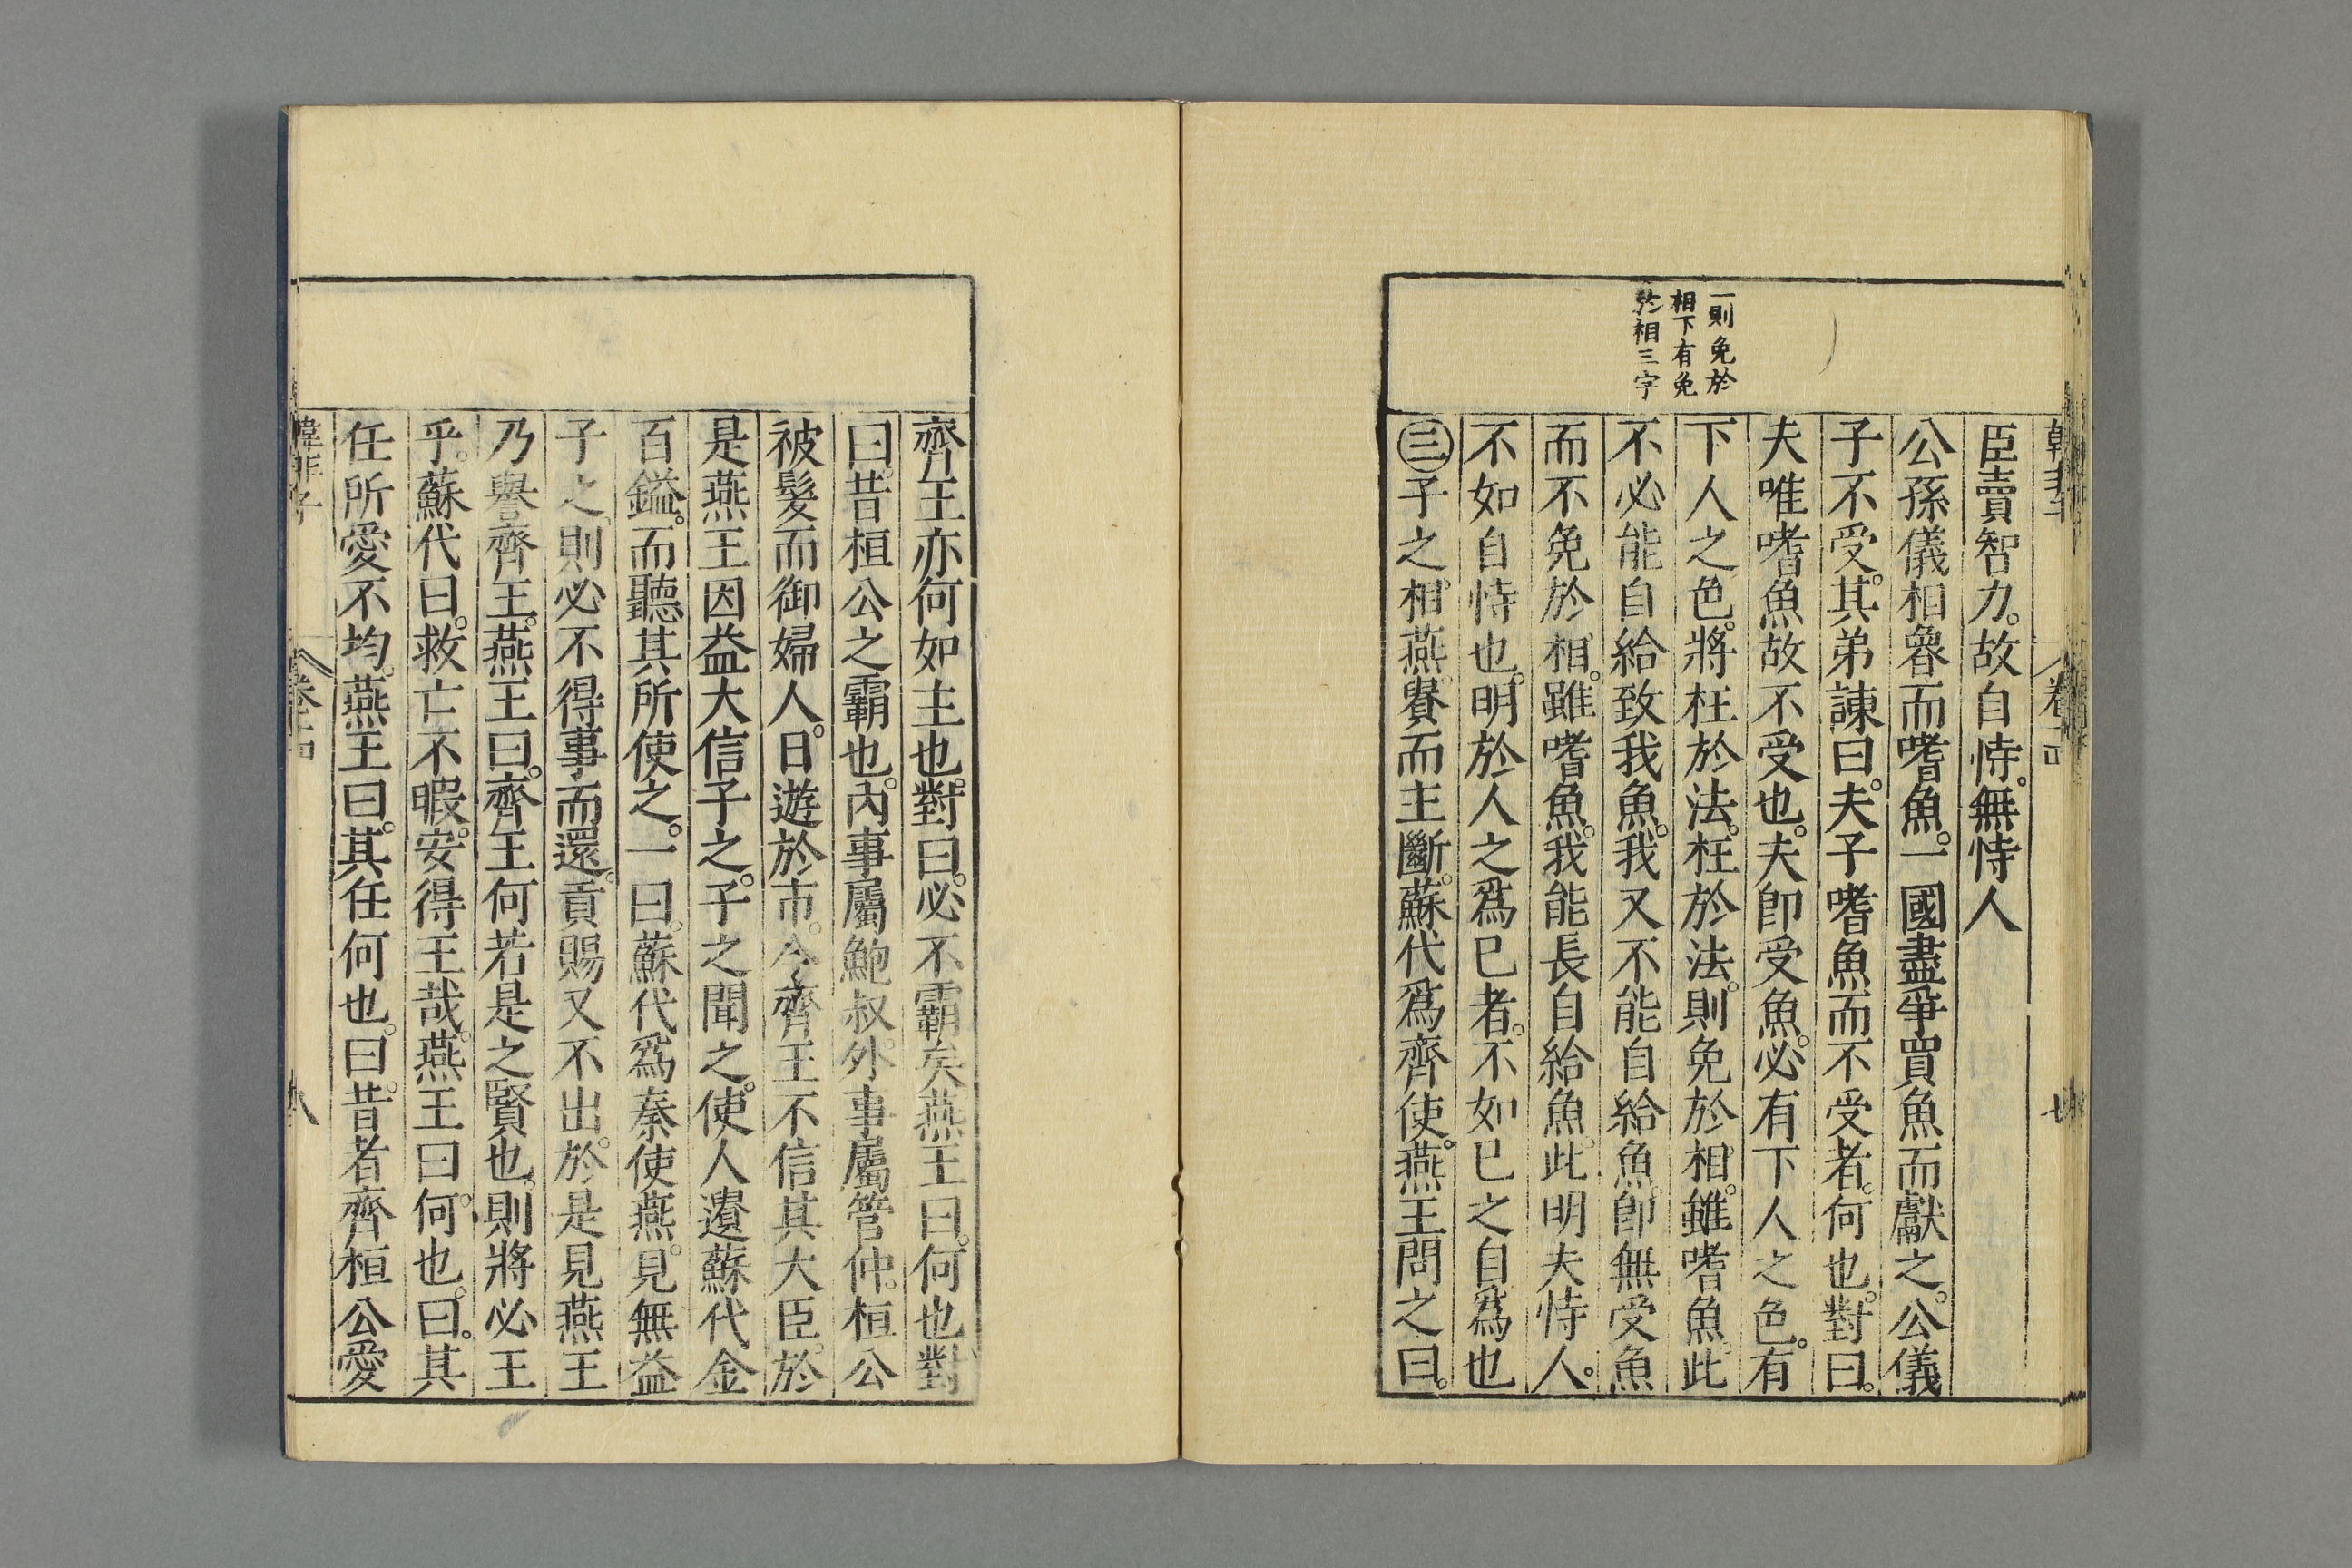 一則免於
相下有免
於相三字
臣賣智力。故自恃。無恃人
公孫儀相魯而嗜魚。一國盡爭買魚而獻之。公儀
子不受。其弟諫曰。夫子嗜魚而不受者。何也。對曰。
夫唯嗜魚故不受也。夫卽受魚。必有下人之色。有
下人之色。將枉於法。枉於法。則免於相。雖嗜魚。此
不必能自給致我魚。我又不能自給魚。卽無受魚
而不免於相。雖嗜魚。我能長自給魚。此明夫恃人。
不如自恃也。明於人之爲已者。不如已之自爲也
㊂子之相燕。貴而主斷。蘇代爲齊使。燕王問之曰。
齊王亦何如主也。對曰。必不霸矣燕王曰。何也對
曰。昔桓公之霸也。內事屬鮑叔。外事屬管仲。桓公
被髮而御婦人。日遊於市。今齊王不信其大臣。於
是燕王因益大信子之。子之聞之。使人遺蘇代金
百鎰。而聽其所使之。一曰。蘇代爲秦使燕。見無益
子之。則必不得事而還。貢賜又不出。於是見燕王
乃譽齊王。燕王曰。齊王何若是之賢也。則將必王
乎。蘇代曰。救亡不暇。安得王哉。燕王曰。何也。曰。其
任所愛不均。燕王曰。其任何也。曰。昔者齊桓公愛
韓非子 卷十四 八